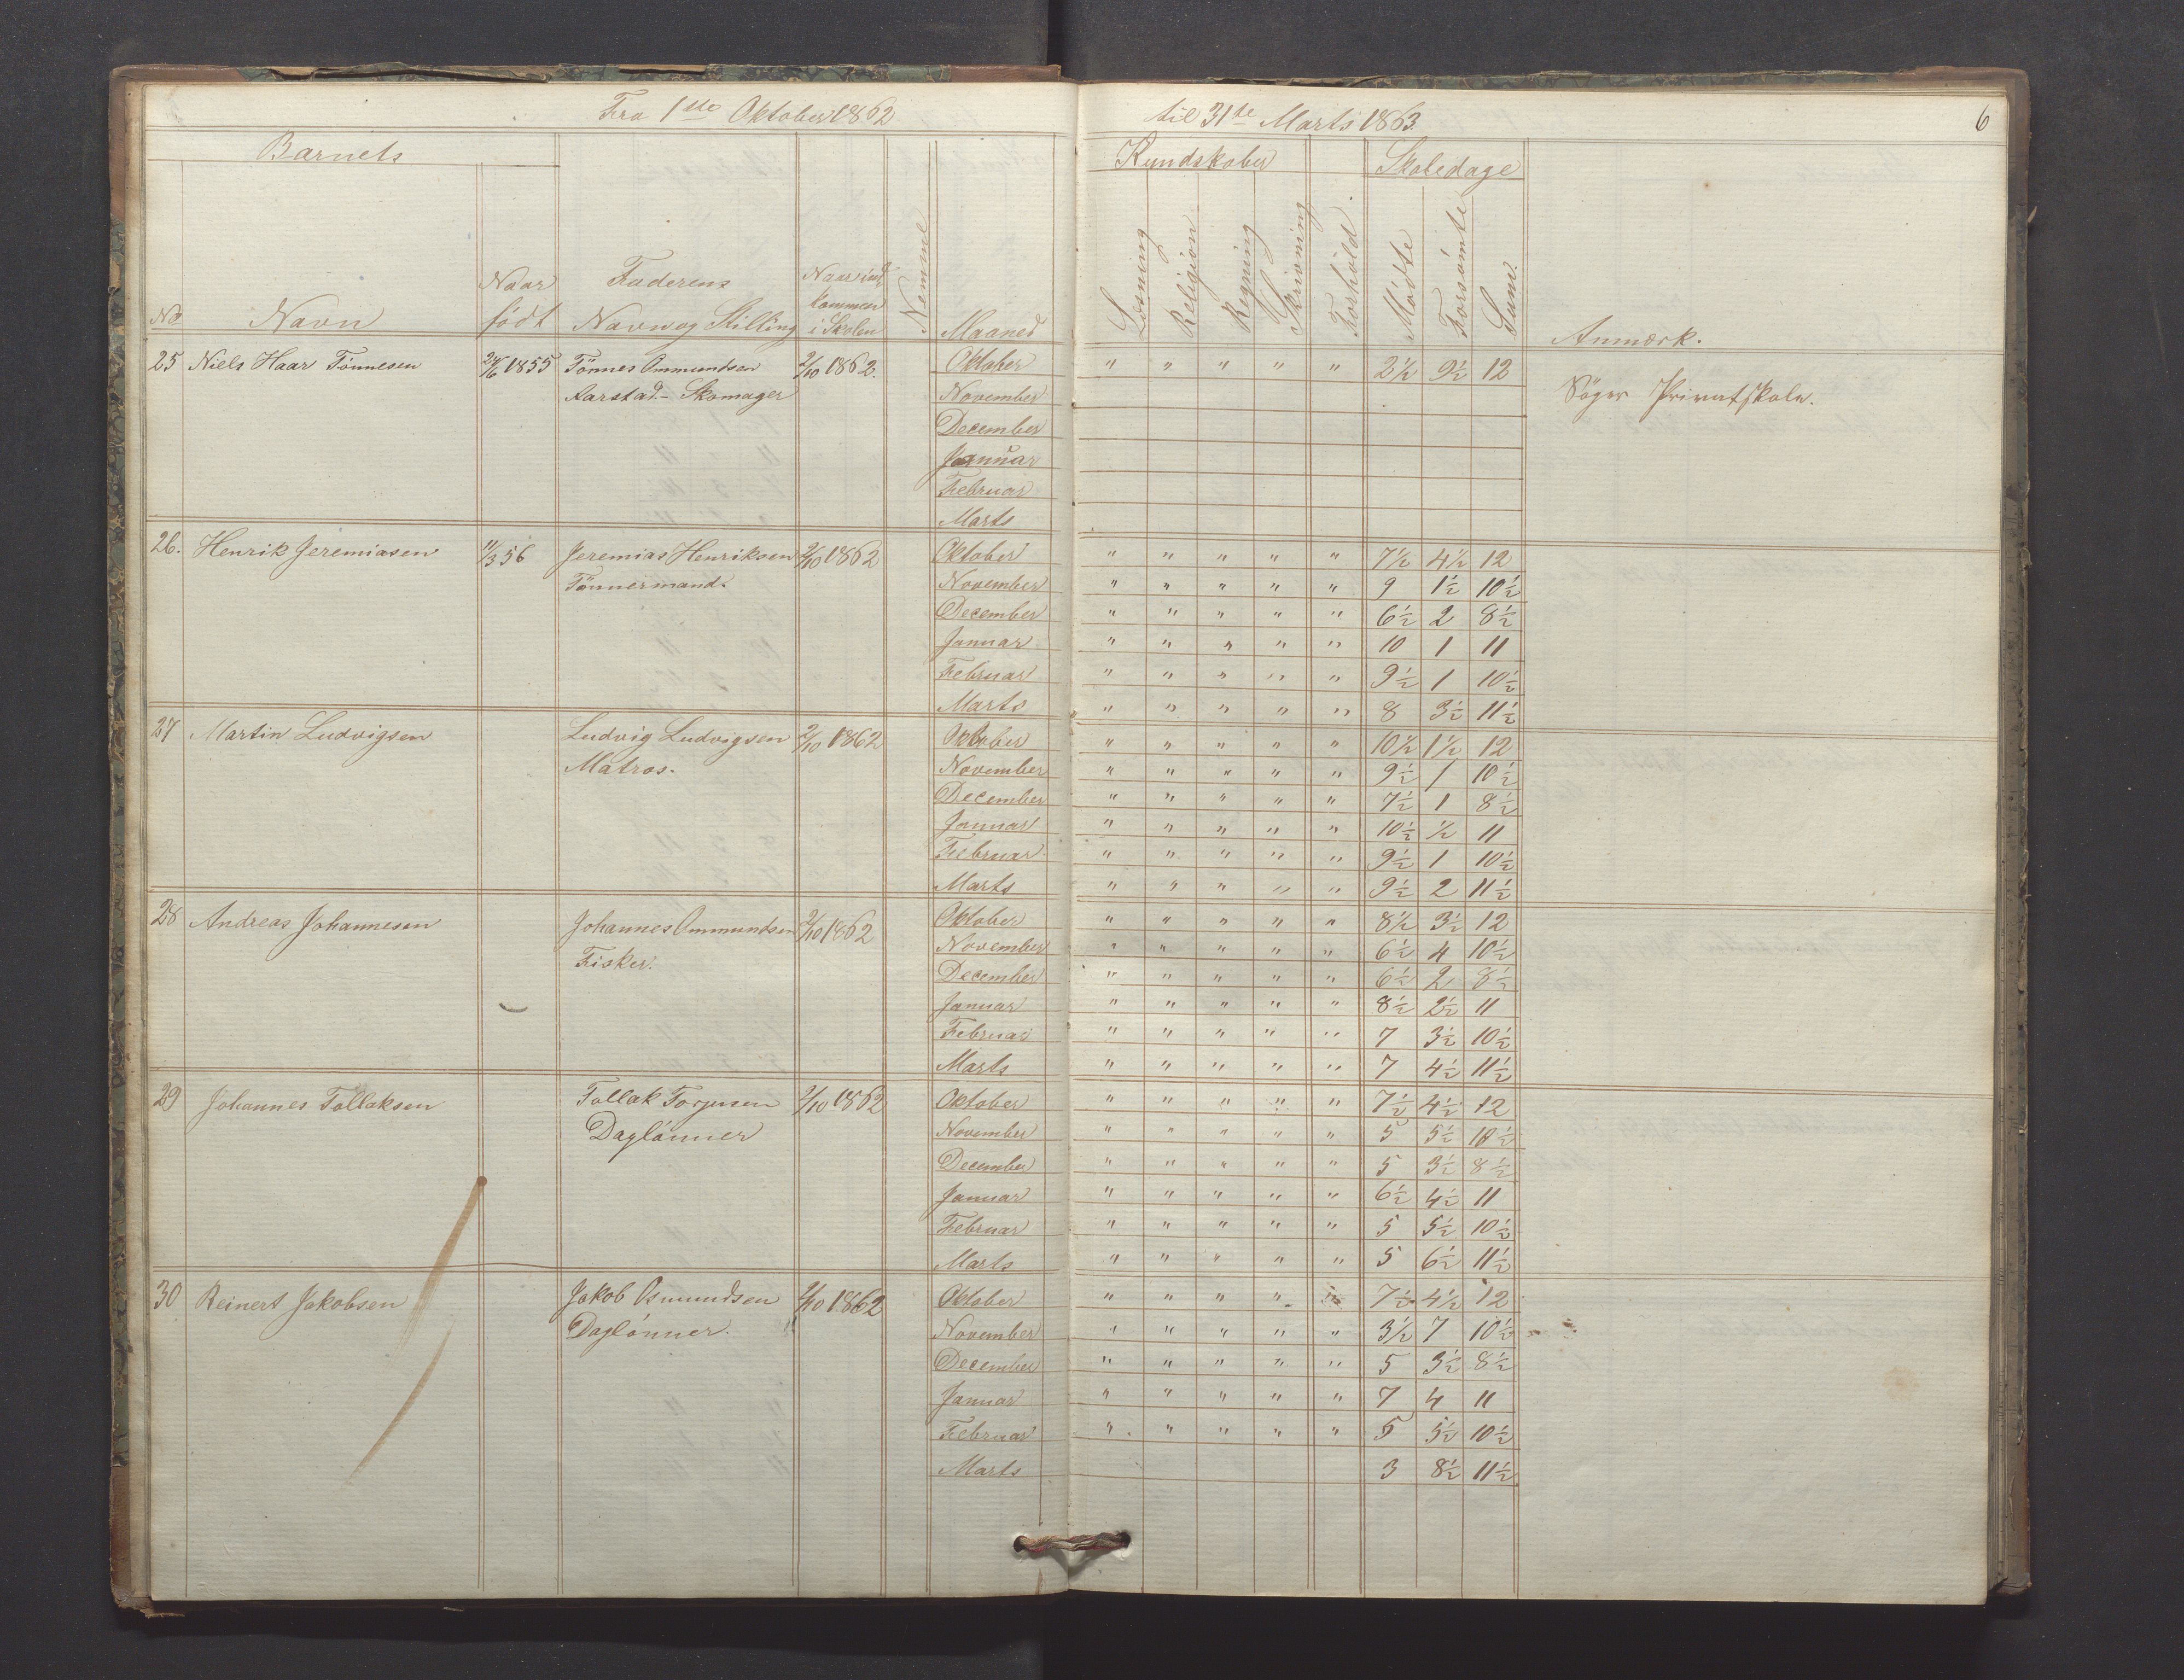 Fra 1ste Oktober 1862 til 31te Marts 1863. 6
Barnets Kundskaber Skoledage
No Navn Naar født Faderens Navn og Stilling Naar ind kommen i Skolen Nemme Maaned Læsning Religion Regning Skrivning Forhold. Mödte Forsömte Sum. Anmærk.
25 Niels Haar Tönnesen 24/6 1855 Tönnes Ommundsen 2/10 1862. Oktober " " " " " 2 1/2 9 1/2 12
Aarstad - Skomager November Söger Privatskole.
December
Januar
Februar
Marts
26. Henrik Jeremiasen 11/3 56 Jeremias Henriksen 2/10 1862 Oktober " " " " " 7 1/2 4 1/2 12
Tömmermand. November " " " " " 9 1 1/2 10 1/2
December " " " " " 6 1/2 2 8 1/2
Januar " " " " " 10 1 11
Februar " " " " " 9 1/2 1 10 1/2
Marts " " " " " 8 3 1/2 11 1/2
27 Martin Ludvigsen Ludvig Ludvigsen 2/10 1862 Oktober " " " " " 10 1/2 1 1/2 12
Matros. November " " " " " 9 1/2 1 10 1/2
December " " " " " 7 1/2 1 8 1/2
Januar " " " " " 10 1/2 1/2 11
Februar " " " " " 9 1/2 1 10 1/2
Marts " " " " " 9 1/2 2 11 1/2
28 Andreas Johannesen Johannes Ommundsen 2/10 1862 Oktober " " " " " 8 1/2 3 1/2 12
Fisker. November " " " " " 6 1/2 4 10 1/2
December " " " " " 6 1/2 2 8 1/2
Januar " " " " " 8 1/2 2 1/2 11
Februar " " " " " 7 3 1/2 10 1/2
Marts " " " " " 7 4 1/2 11 1/2
29 Johannes Tollaksen Tollak Torjusen 2/10 1862 Oktober " " " " " 7 1/2 4 1/2 12
Daglönner November " " " " " 5 5 1/2 10 1/2
December " " " " " 5 3 1/2 8 1/2
Januar " " " " " 6 1/2 4 1/2 11
Februar " " " " " 5 5 1/2 10 1/2
Marts " " " " " 5 6 1/2 11 1/2
30 Reinert Jakobsen Jakob Osmundsen 2/10 1862 Oktober " " " " " 7 1/2 4 1/2 12
Daglönner. November " " " " " 3 1/2 7 10 1/2
December " " " " " 5 3 1/2 8 1/2
Januar " " " " " 7 4 11
Februar " " " " " 5 5 1/2 10 1/2
Marts 3 8 1/2 11 1/2